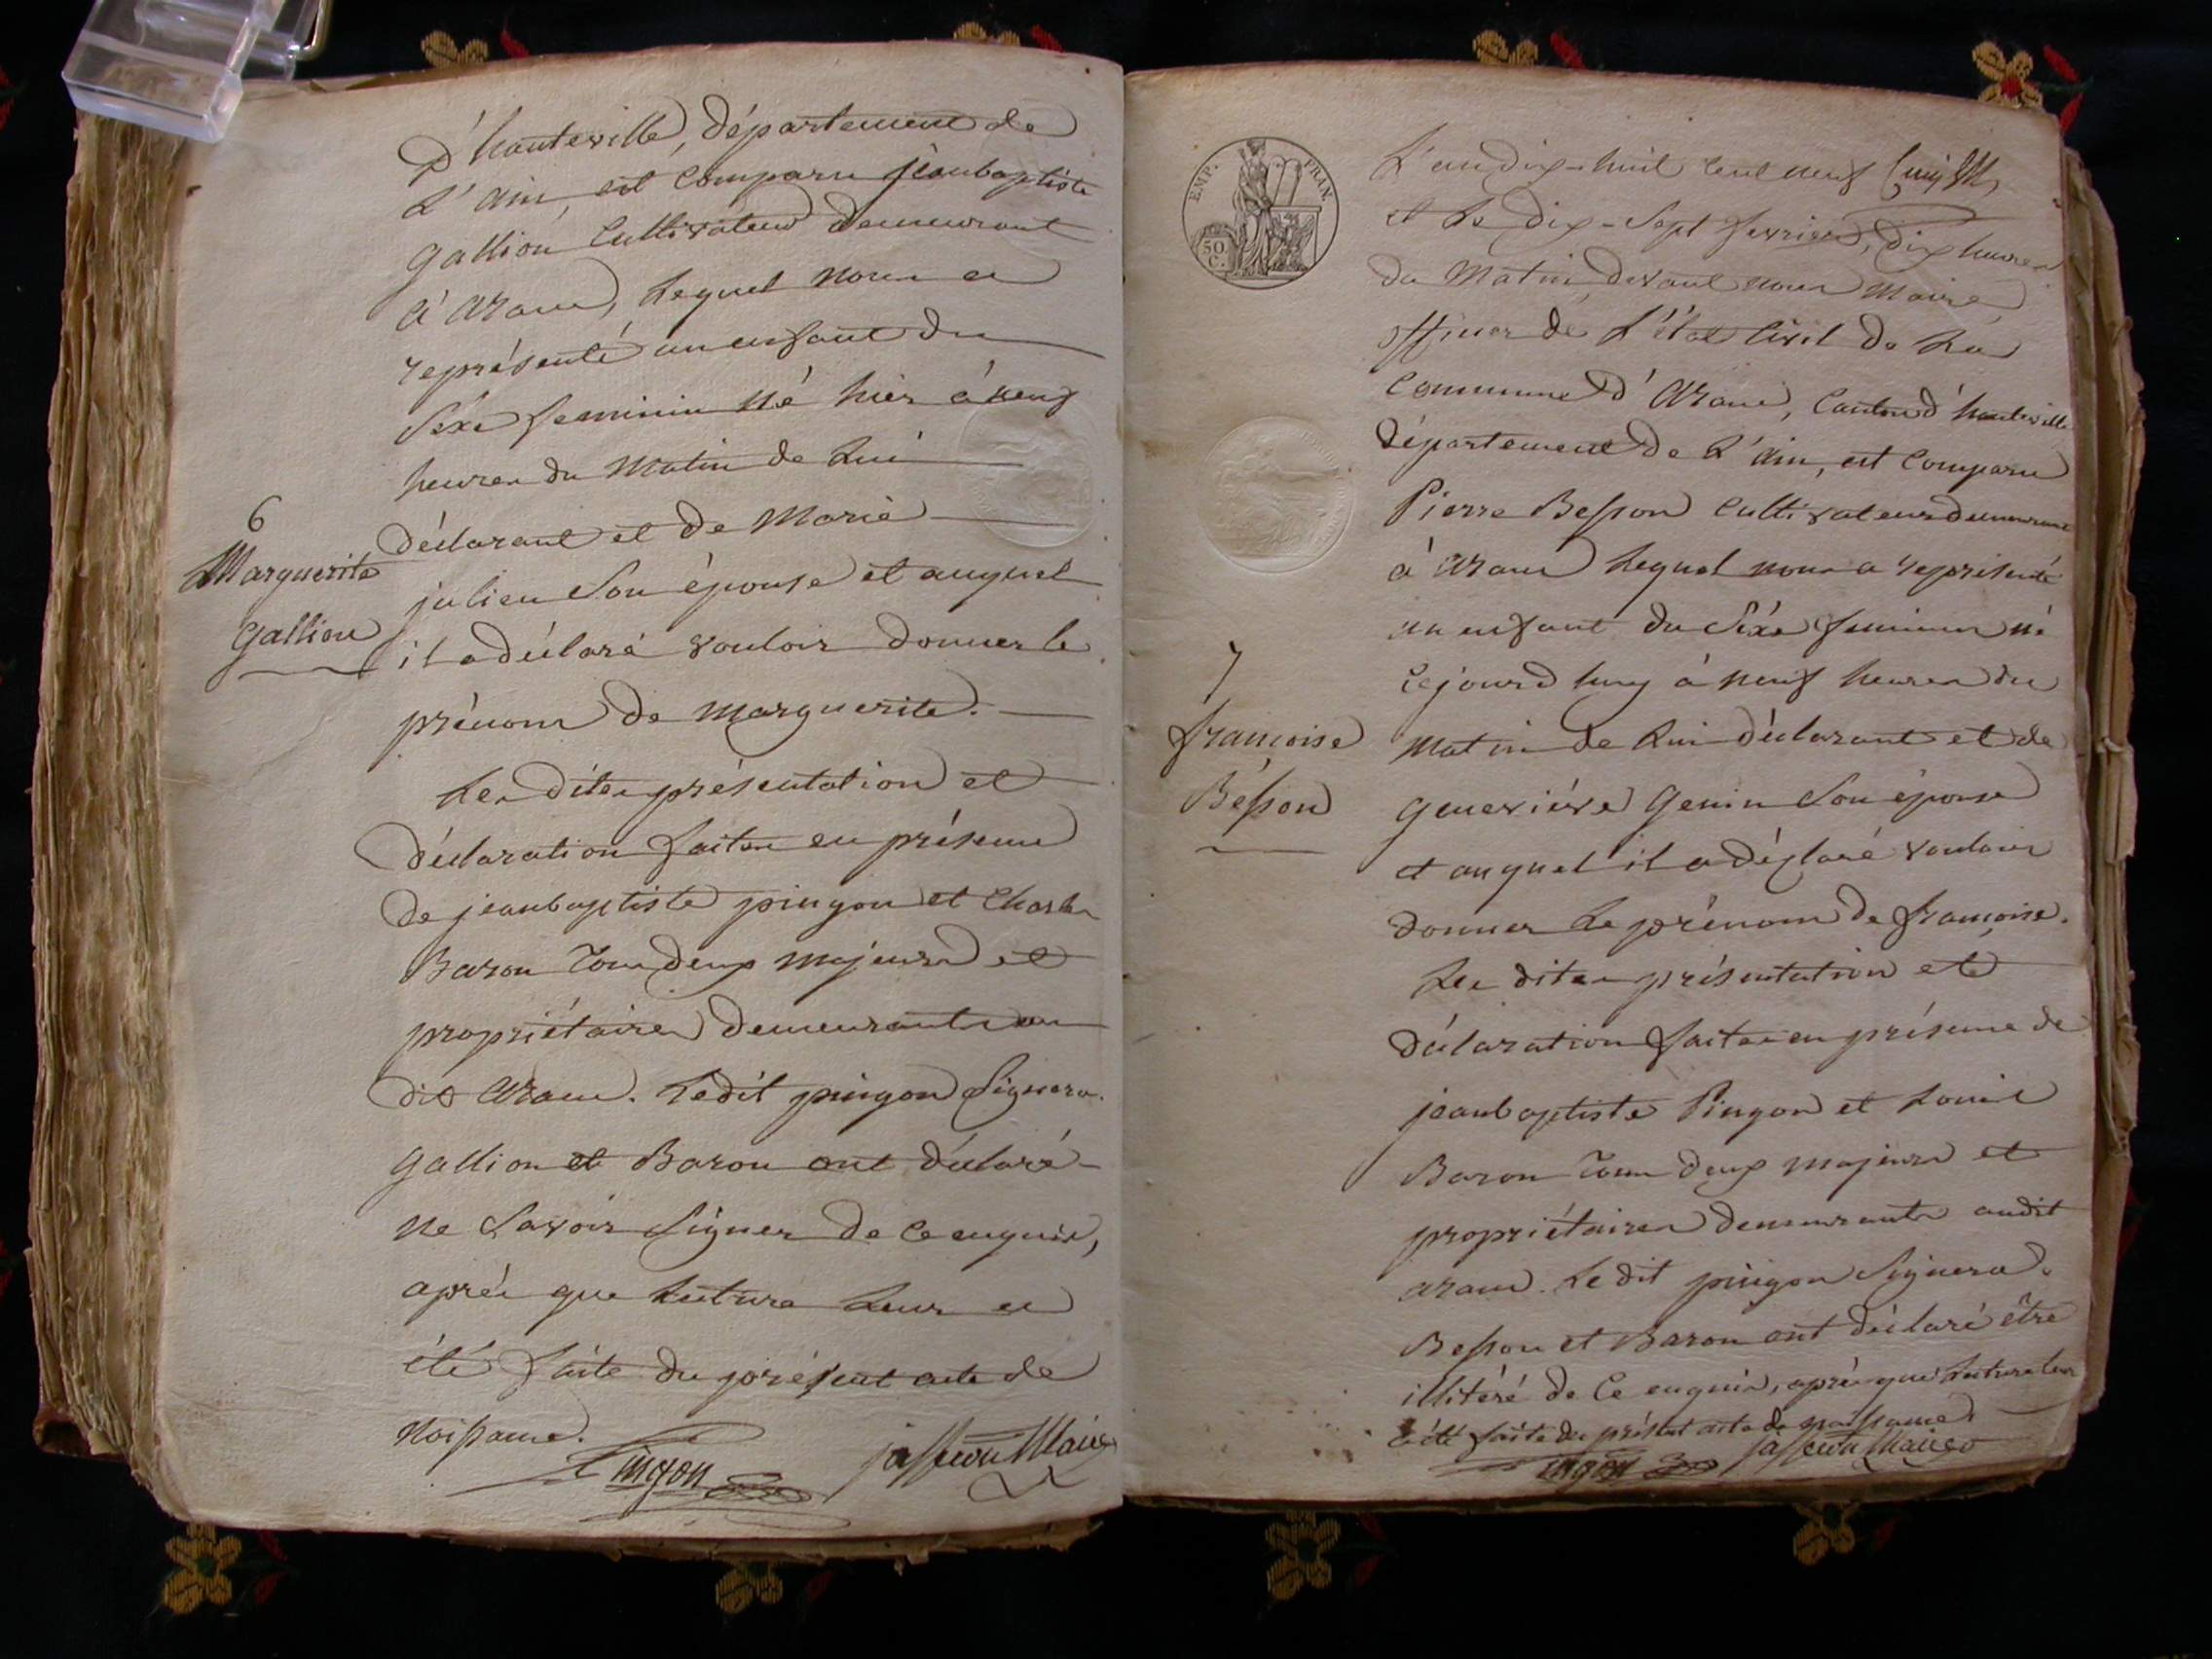 D'hauteville, département de
L'ain, est comparu jeanbaptiste
gallion Cultivateur demeurant
à aranc, lequel nous a
représenté un enfant du
Séxe feminin né hier à neuf
heures du matin de lui
6
Marguerite
gallion
déclarant et de marie
julien Son épouse et auquel
il a déclaré vouloir donner le
prénom de marguerite.
Les dites présentation et
déclaration faites en présence
de jeanbaptiste pingon et Charles
Baron tous deux majeurs et
propriétaires demeurants au
dit aranc. Ledit pingon Signera.
gallion et Baron ont déclaré
ne Savoir Signer de ce enquis,
après que lecture leur a
été faite du présent acte de
Noissance.
Pingon
EMP. FRAN.
50 C.
L'an dix-huit Cent neuf
et le dix-Sept fevrier, dix heures
du Matin devant nous Maire
officier de L'état Civil de La
Commune d'aranc, Canton d'hauteville
département de L'ain, est Comparu
Pierre Besson Cultivateur demeurant
à aranc lequel nous a représenté
un enfant du Séxe feminin né
Cejourd huy à neuf heures du
7
françoise
Bésson
matin de lui déclarant et de
geneviéve genin Son épouse
et auquel il a déclaré vouloir
donner le prénom de françoise.
Les dites présentation et
déclaration faites en présence de
jeanbaptiste Pingon et Louis
Baron tous deux majeurs et
propriétaires demeurants audit
aranc. Le dit pingon Signera.
Besson et Baron ont déclaré être
illitéré de Ce enquis, après que Lecture leur
a été faite du présent acte de naissance.
Pingon